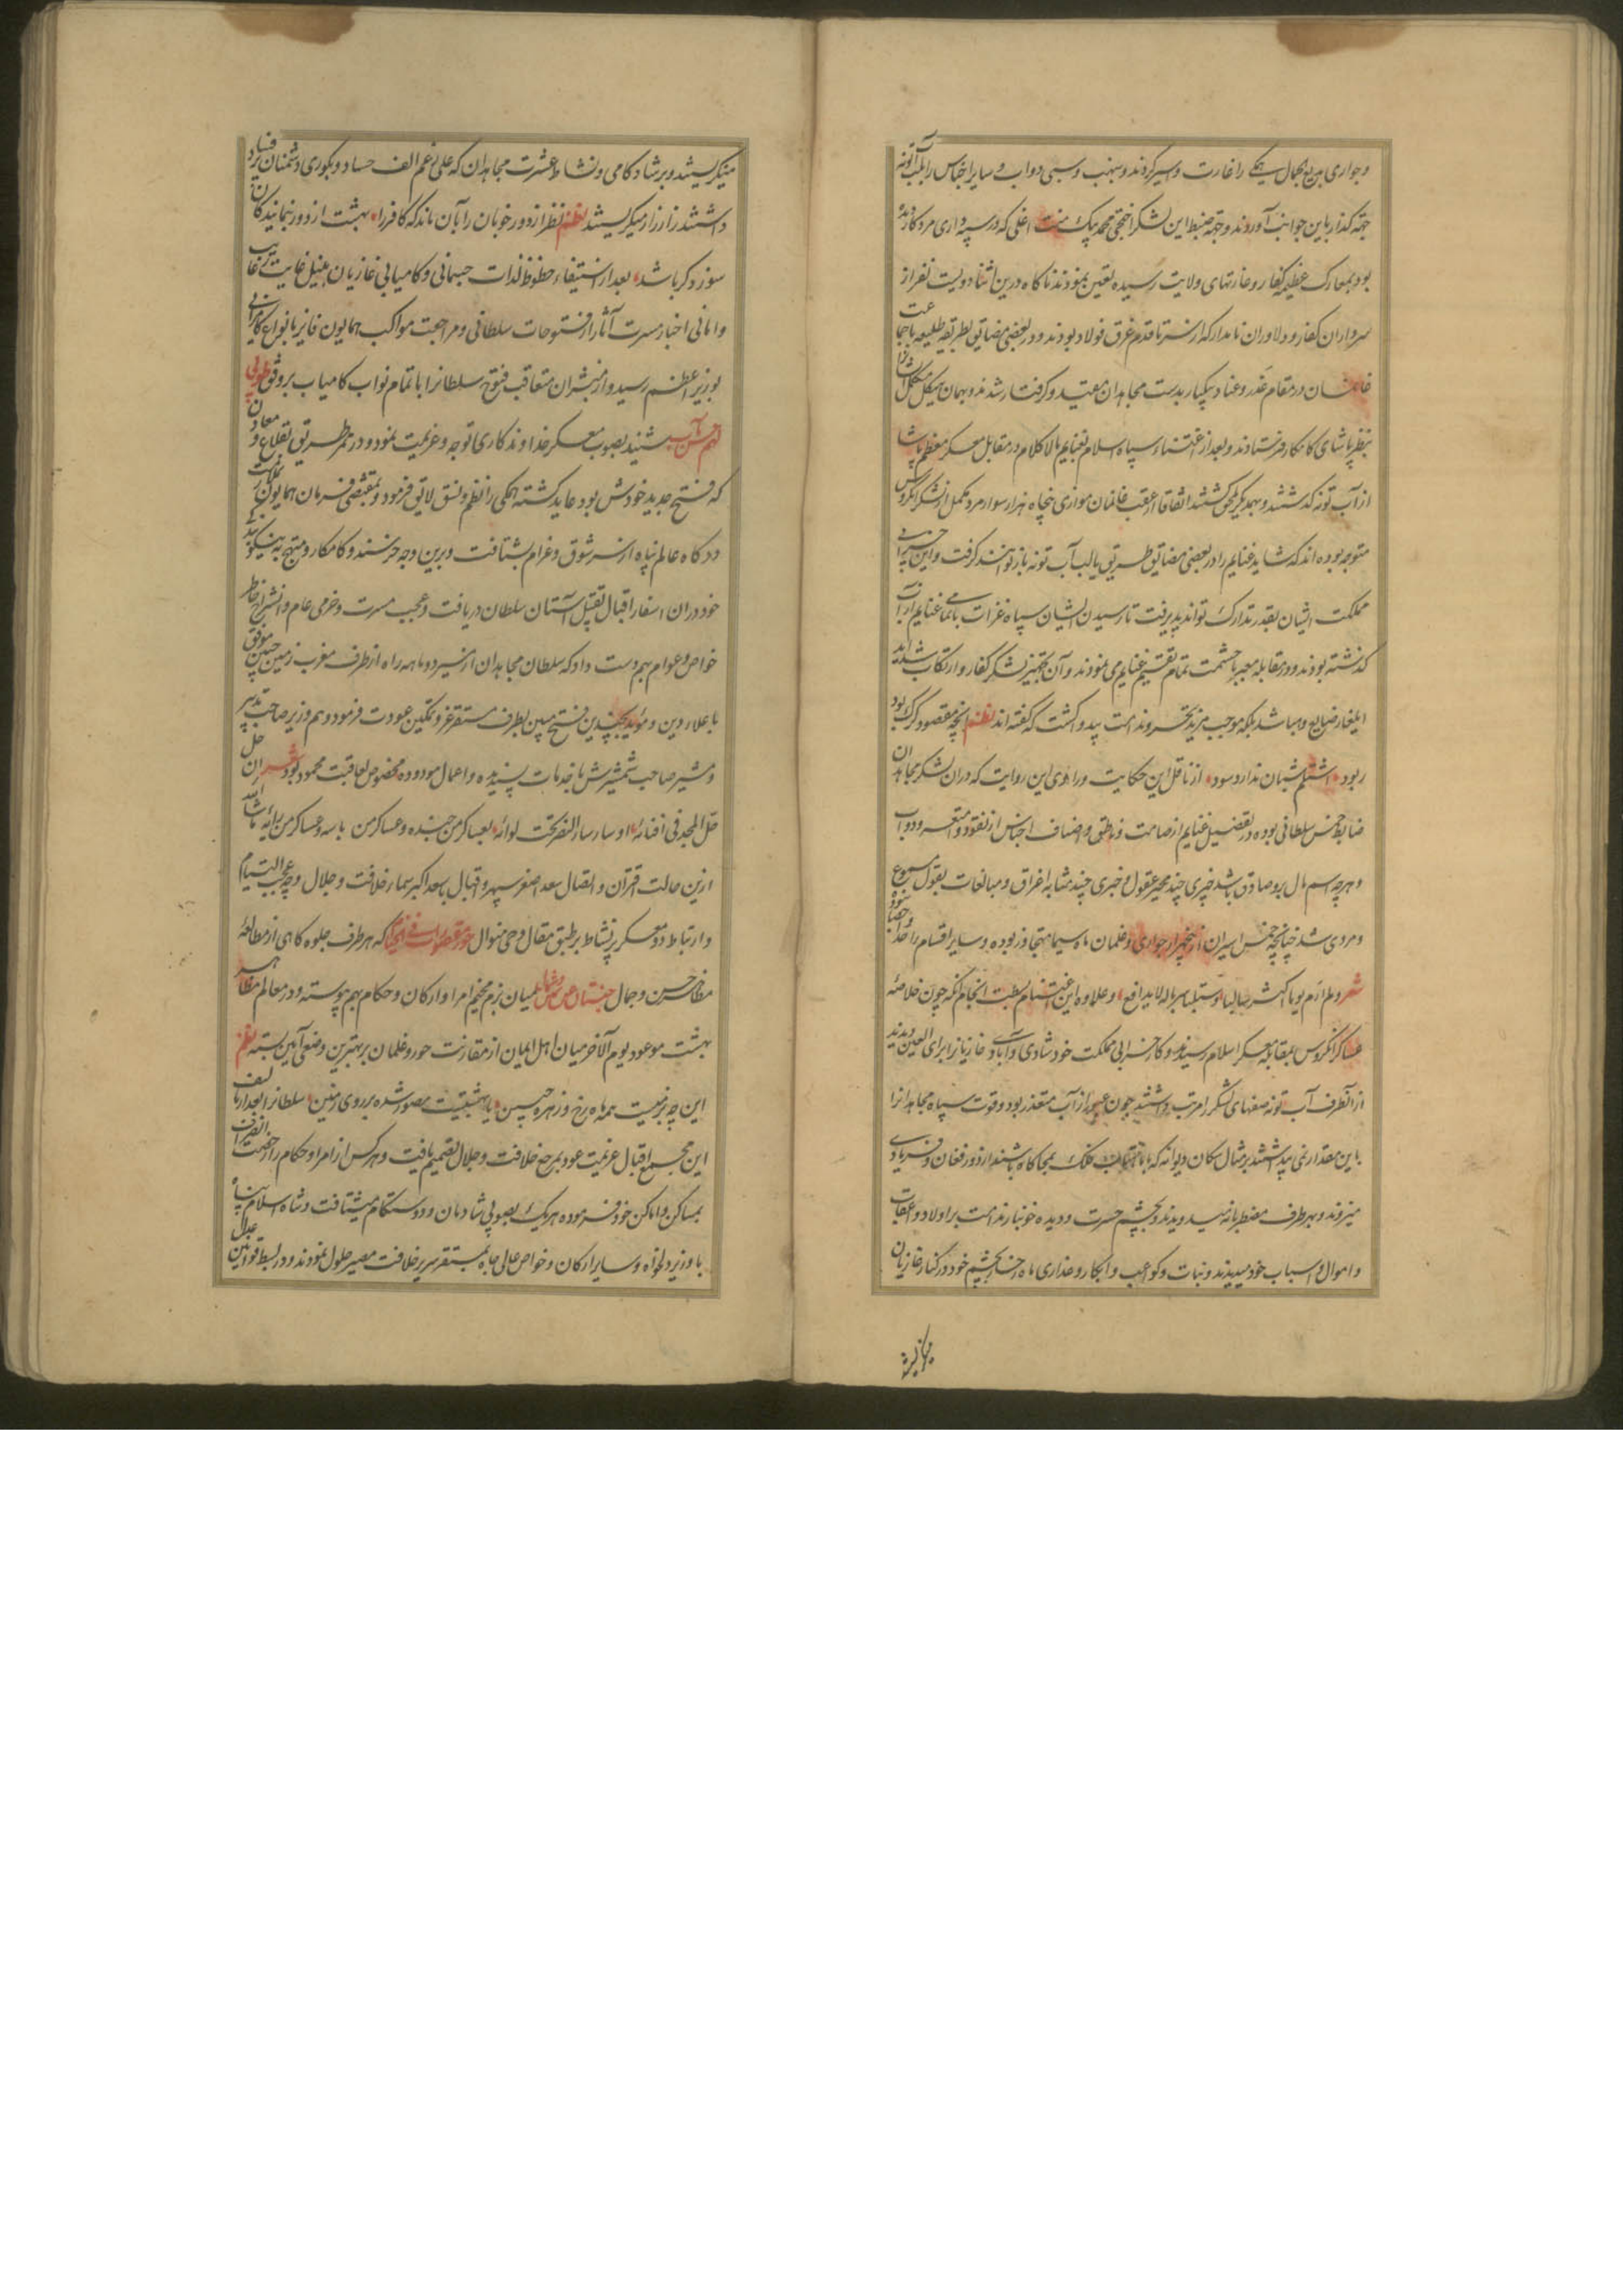 و جواری بدیع الجمال همگی را غارت و اسیر کردند و بنهب و سبی دواب و سایر اجناس را بلب آب تونه
جهة گذار باین جوانب آوردند و جهة ضبط این لشکر اخجی محمد بیک منت اغلی که در سپه داری مرد کار دیده
بود بمعارک عظیمه کفار و غارتهای ولایت رسیده تعیین نمودند ناکاه درین اثنا دویست نفر از
سرداران کفار و دلاوران نامدار که از سر تا قدم غرق فولاد بودند و در بعضی مضایق بطریقه طلیعه با جماعت
در مقام غدر و عناد بیکبار بدست مجاهدان مقید و گرفتار شدند و بهمان هیکل
بنظر پاشای کامکار فرستادند و بعد از اغتنام سپاه اسلام بغنایم لا کلام در مقابل معسکر معظم پاشا
از آب تونه گذشتند و بهمدیگر ملحق گشتند اتفاقا از عقب غانمان موازی پنجاه هزار سوار مرد مکمل از لشکر انکروس
متوجه بوده اند که شاید غنایم را در بعضی مضایق طریق یا لب آب تونه باز توانند گرفت و این خرابی
مملکت ایشان بقدر تدارک تواند پذیرفت تا رسیدن ایشان سپاه غزات با تمامی غنایم از آب
گذشته بودند و در مقابله معبر با حشمت تمام تقسیم غنایم می نمودند و آن تجهیز لشکر کفار و ارتکاب شداید
ایلغار ضایع و هبا شد بلکه موجب مزید تحسر و ندامت پید و گشت که گفته اند نظم آنچه مقصود گرگ بود
ربود اشتلم شبان ندارد سود از ناقل این حکایت و راوی این روایت که در آن لشکر مجاهدان
ضابط خمس سلطانی بوده در تفصیل غنایم از صامت و ناطق و اصناف اجناس از نقود و امتعه و دواب
و هرچه اسم مال برو صادق باشد خبری چند محیر عقول و خبری چند بمثابه اغراق و مبالغات بقول مسموع
و مروی شد چنانچه خمس اسیران از پنجهزار جواری و غلمان ماه سیما متجاوز بوده و سایر اقسام را حد
شعر و لم ار یوما اکثر سالبا و مستلبا سرباله لا یدافع و علاوه این اغتنام انجام آنکه چون خلاصه
عساکر انکروس بمقابله معسکر اسلام رسیدند و کار خرابی مملکت خود شادی و آبادی غازیان را برای العین دیدند
از آنطرف آب تونه صفهای لشکر را مرتب داشتند چون عبور از آب متعذر بود و قوت سپاه مجاهدان را
باین مقدار نمی پنداشتند بر مثال سکان دیوانه که با مهتاب فلک بجا گاه باشند از دور فغان و فریادی
میزدند و بهر طرف مضطربانه میدویدند و بچشم حسرت و دیده خونبار ندامت بر اولاد و اعقاب
و اموال و اسباب خود میدیدند و بنات و کواعب و ابکار و عذاری ماه رخسار بچشم خود در کنار غازیان
میگریستند و بر شادکامی و نشاط عشرت مجاهدان که علی رغم الف حساد و بکوری دشمنان پر فساد
داشتند زار زار میگریستند نظم نظر از دور خوبان را بآن ماند که کافر را بهشت از دور بنمایند کان
سوز دگر باشد بعد از استیفاء حظوظ لذات جسمانی و کامیابی غازیان بنیل غایت
و امانی اخبار مسرت آثار از فتوحات سلطانی و مراجعت مواکب همایون فایز بانواع کامرانی
بوزیر اعظم رسید و از مبشران متعاقب فتوح سلطان را با تمام نواب کامیاب بر وفق طوبی
لهم و حسن مآب شنید بصوب معسکر خداوندکاری توجه و عزیمت نمود و در ممر طریق بقلاع و
که فتح جدید خودش بود عاید گشته همگی را نظم و نسق لایق فرمود و بمقتضی فرمان همایون
درکاه عالم پناه از سر شوق و غرام بشتافت و برین وجه خرسند و کامکار و مبتهج به نیکو بندگی
خود در آن اسفار اقبال تقبیل آستان سلطان دریافت و عجیب مسرت و خرمی عام و انشراح خاطر
خواص و عوام بهم دست داد که سلطان مجاهدان از سیر دو ماهه راه از طرف مغرب زمین چنین موفق
با علاء دین و مؤید بچندین فتح مبین بطرف مستقر عز و تمکین عودت فرمود و هم وزیر صاحب تدبیر
و مشیر صاحب شمشیرش با خدمات پسندیده و اعمال مودوده مخصوص بعاقبت محمود بود شعر ان حل
حل المجد فی افنائه او سار سار النصر تحت لوائه بعساکر من جنده و عساکر من باسه و عساکر من رائه ما شاء الله
ازین حالت اقتران و اتصال سعد اصغر سپهر و اقبال با سعد اکبر سماء خلافت و جلال و چه عجب التیام
و ارتباط دو معسکر پر نشاط بر طبق مقال وحی منوال حور مقصورات فی الخیام که هر طرف جلوه گاهی از مطالعه
مظاهر حسن و جمال جنتان عن یمین و شمال میان بزم مخیم امرا و ارکان و حکام بهم پیوسته و در معالم مظاهر
بهشت موعود یوم الآخر میان اهل ایمان از مقارنت حور و غلمان بر بهترین وضعی آیین بسته نظم
این چه بزمیست همه ماه رخ و زهره جبین یا بهشتیست مصور شده بر روی زمین سلطان را بعد از تالیف
این مجمع اقبال عزیمت عود بمرجع خلافت و جلال تصمیم یافت و هر کس از امرا و حکام را رخصت انصراف
بمساکن و اماکن خود فرموده هر یک بصوبی شادمان و دوستکام میشتافت و شاه اسلام پناه
با وزیر دلخواه و سایر ارکان و خواص عالی جاه بمستقر سریر خلافت مصیر حلول نمودند و در بسط قوانین عدل